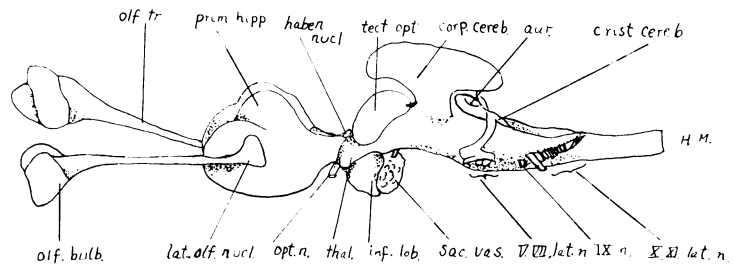 olf. tr
prim hipp
haben
nucl
tect opt
corp. cereb.
aur.
crist cereb
H M.
olf. bulb.
lat. olf. nucl.
opt. n.
thal.
inf. lob.
sac. vas.
V. VII. lat. n
IX n.
X. XI. lat. n.